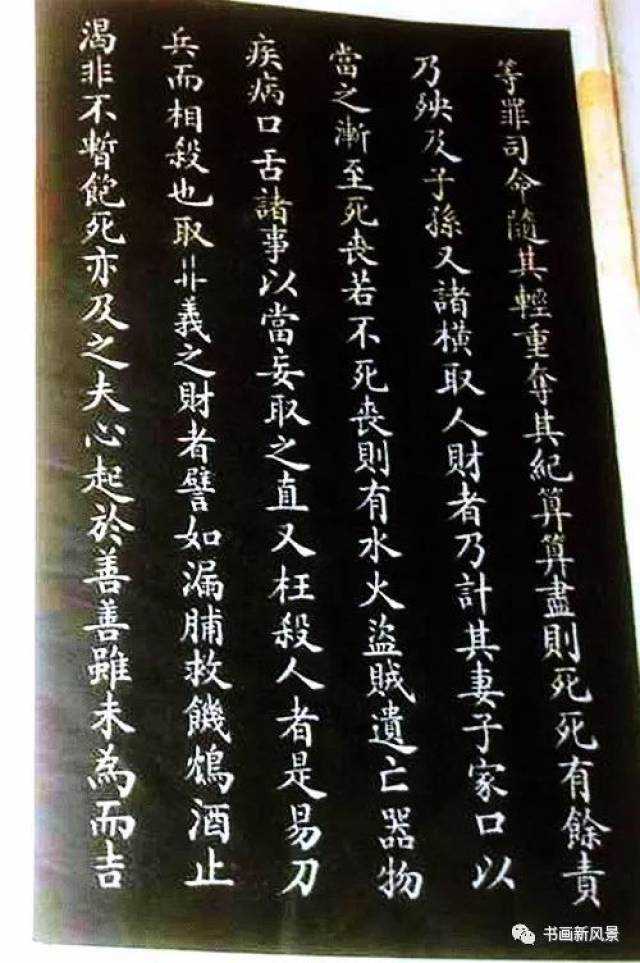 等罪司命隨其輕重奪其紀算算盡則死死有餘責
乃殃及子孫又諸橫取人財者乃計其妻子家口以
當之漸至死喪若不死喪則有水火盜賊遺亡器物
疾病口舌諸事以當妄取之直又枉殺人者是易刀
兵而相殺也取非義之財者譬如漏脯救饑鴆酒止
渴非不暫飽死亦及之夫心起於善善雖未為而吉
书画新风景